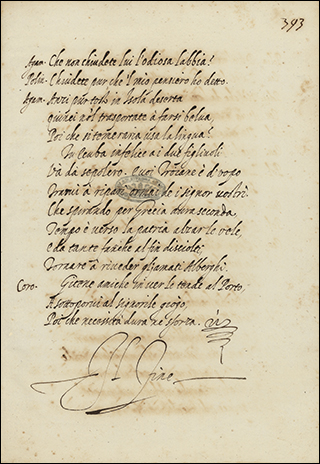 393
Agam. Che non chiudete lui l'odiosa labbia?
Polin. Chiudete pur che 'l mio pensiero ho detto.
Agam. Anzi più tosto in Isola deserta
quinci nol trasportate à farsi belua,
Poi che sì temeraria usa la lingua?
Tu Ecuba infelice ai due figliuoli
Và dà sepolcro. è d'vopo
de i signor vostri
Che spirando per Grecia aura seconda,
Tempo è verso la patria alzar le vele,
e da tante al fin disciolti
Tornare à riveder gl'amati Alberghi.
Coro. Gitene amiche in ver le tende al Porto
A sottoporvi al signorile giogo,
Poi che necessità dura ne sforza.
Il Fine